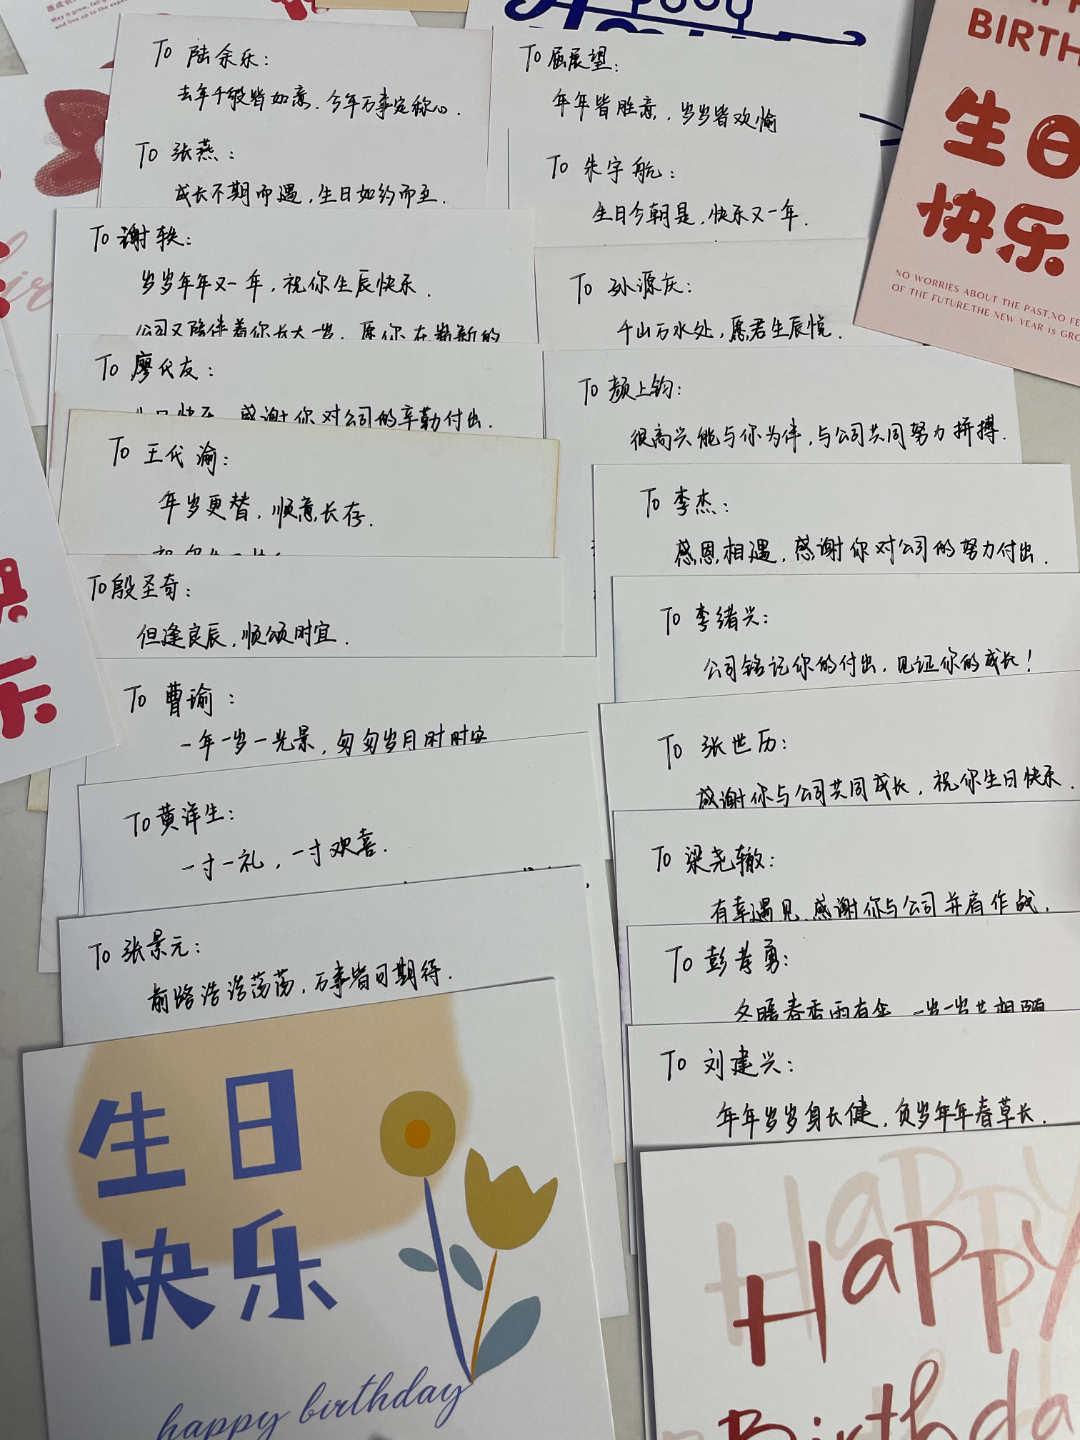 To 陆余乐：
去年千般皆如意，今年万事定称心．
To 张燕：
成长不期而遇，生日如约而至．
To 谢轶：
岁岁年年又一年，祝你生辰快乐．
公司又陪伴着你长大一岁，愿你在崭新的
To 廖代友：
生日快乐，感谢你对公司的辛勤付出．
To 王代渝：
年岁更替，顺意长存．
To 殷圣奇：
但逢良辰，顺颂时宜．
To 曹瑜：
一年一岁一光景，匆匆岁月时时安
To 黄洋生：
一寸一礼，一寸欢喜．
To 张景元：
前路浩浩荡荡，万事皆可期待．
生日
快乐
happy birthday
To 屈展望：
年年皆胜意，岁岁皆欢愉
To 朱宇航：
生日今朝是，快乐又一年．
To 孙源庆：
千山万水处，愿君生辰悦．
To 颜上钧：
很高兴能与你为伴，与公司共同努力拼搏．
To 李杰：
感恩相遇，感谢你对公司的努力付出．
To 李绪兴：
公司铭记你的付出，见证你的成长！
To 张世历：
感谢你与公司共同成长，祝你生日快乐．
To 梁尧辙：
有幸遇见，感谢你与公司并肩作战．
To 彭孝勇：
To 刘建兴：
年年岁岁身长健，负岁年年春草长．
Happy
Birthda
BIRTH
生日
快乐
NO WORRIES ABOUT THE PAST,NO FE
OF THE FUTURE.THE NEW YEAR is GRO
快
乐